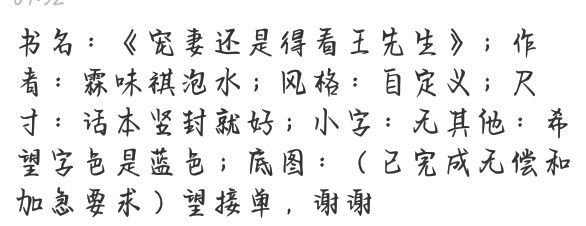 书名：《宠妻还是得看王先生》；作
者：霖味祺泡水；风格：自定义；尺
寸：话本竖封就好；小字：无其他：希
望字色是蓝色；底图：（已完成无偿和
加急要求）望接单，谢谢